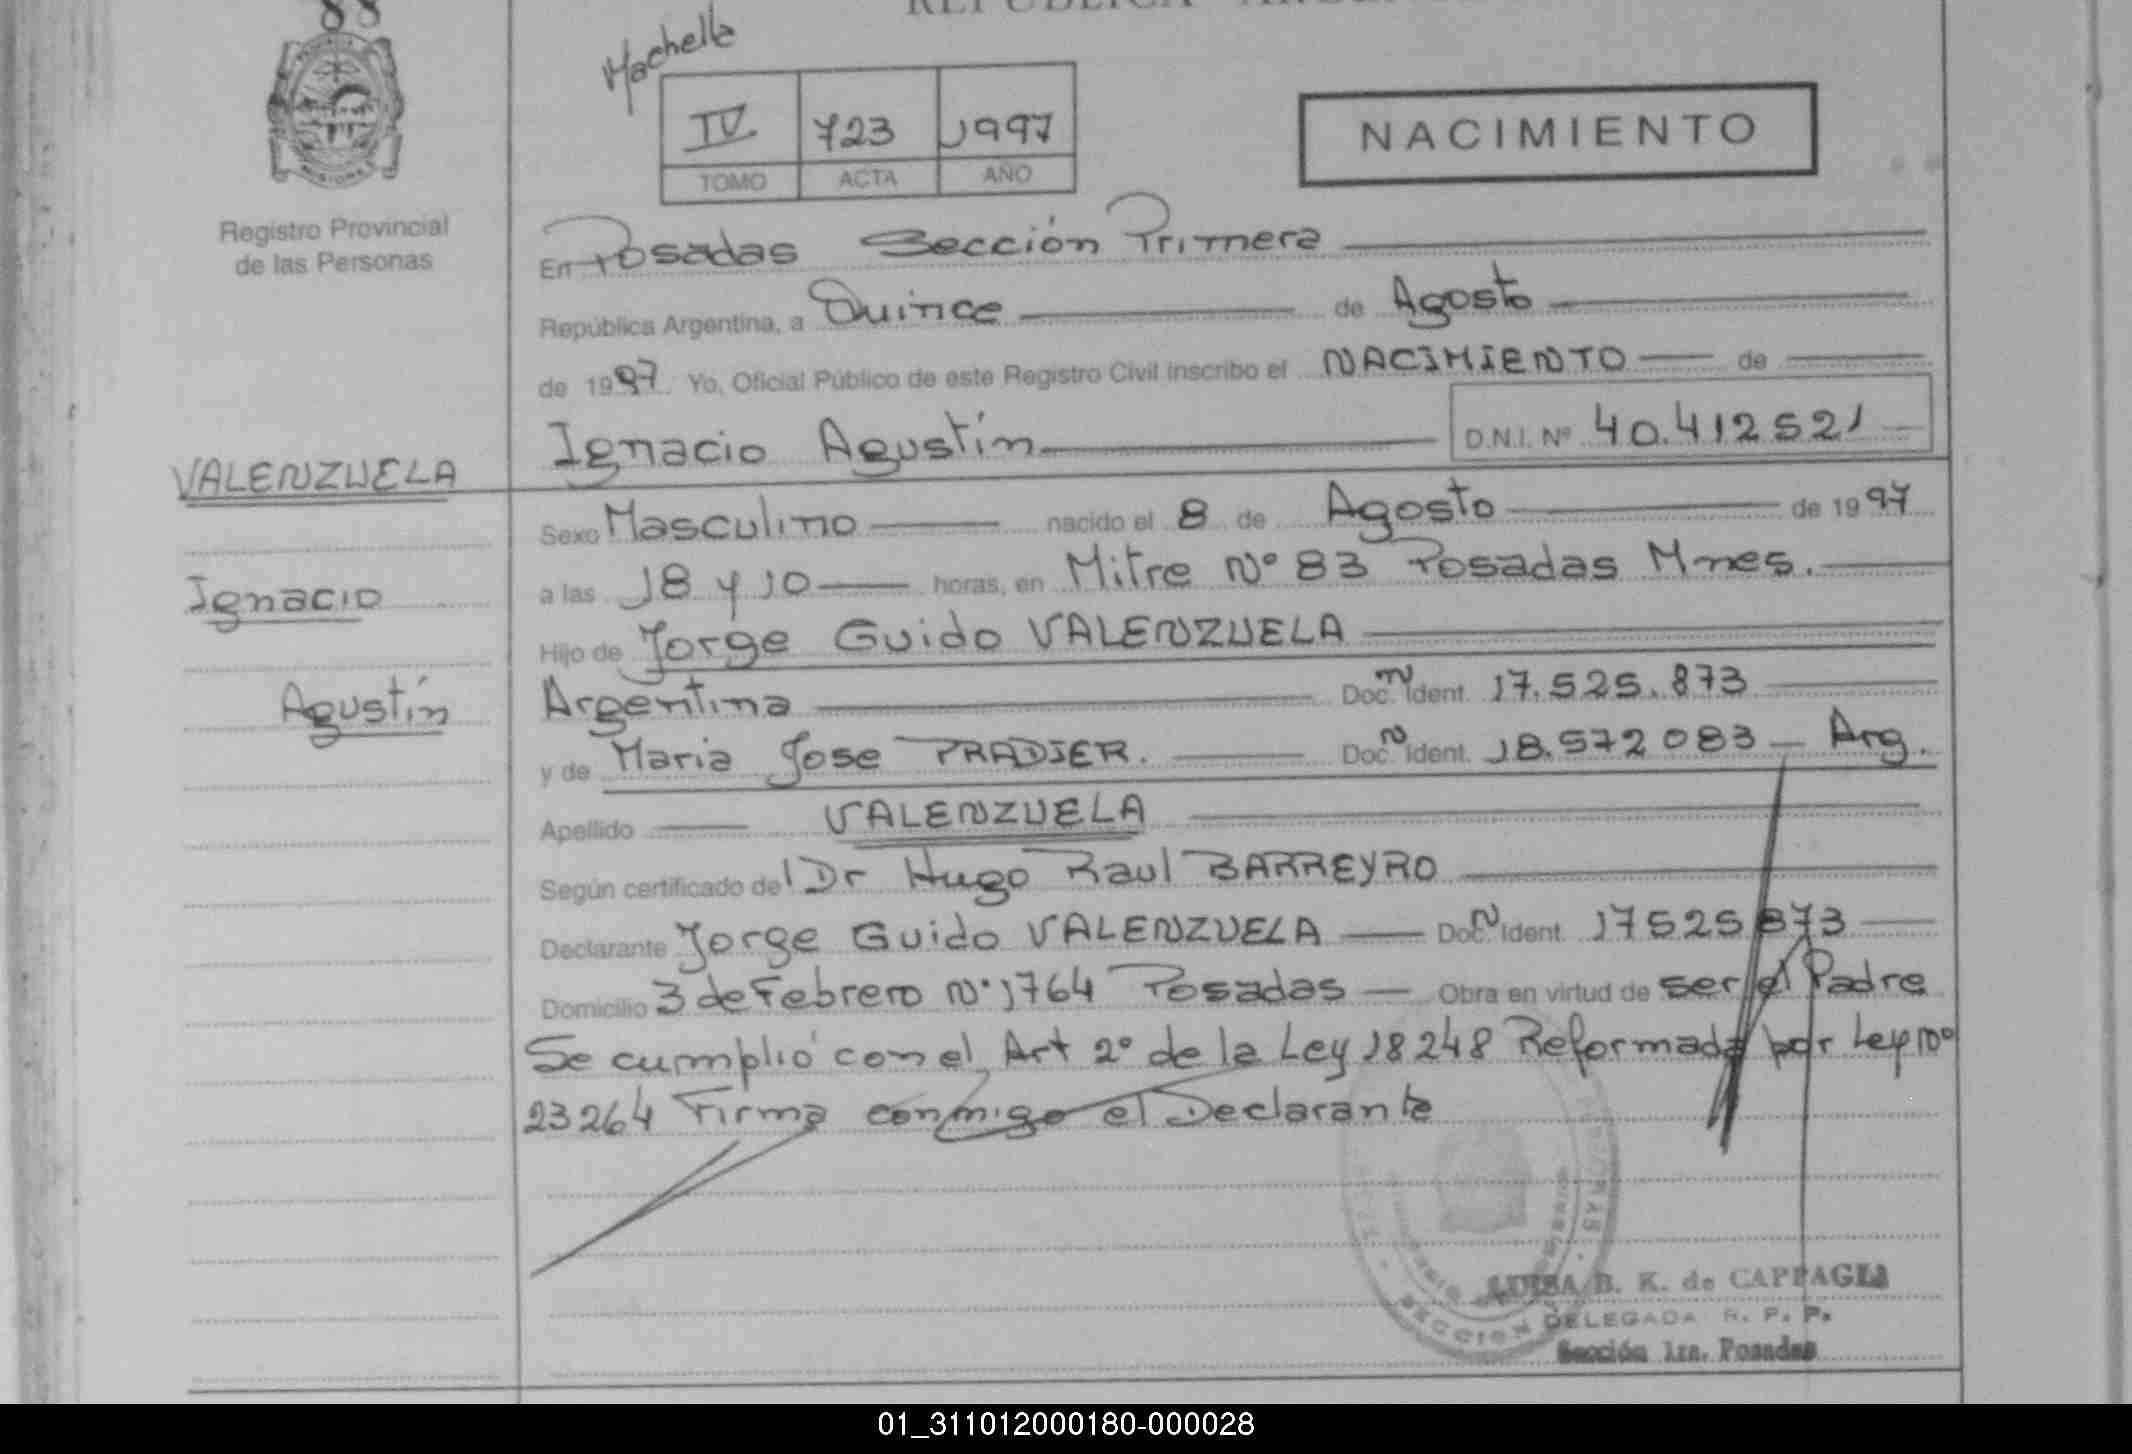 88
REPUBLICA ARGENTINA
Machella
IV 723 1997
TOMO ACTA AÑO
NACIMIENTO
Registro Provincial
de las Personas
En Posadas Sección Primera
República Argentina, a Quince de Agosto
de 1997. Yo, Oficial Público de este Registro Civil inscribo el NACIMIENTO de
Ignacio Agustín D.N.I. Nº 40.412521
VALENZUELA
Ignacio
Agustín
Sexo Masculino nacido el 8 de Agosto de 1997
a las 18 y 10 horas, en Mitre Nº 83 Posadas Mnes.
Hijo de Jorge Guido VALENZUELA
Argentina Doc. N Ident. 17.525.873
y de Maria Jose PRADIER. Doc. N Ident. 18.572083 Arg.
Apellido VALENZUELA
Según certificado del Dr Hugo Raul BARREYRO
Declarante Jorge Guido VALENZUELA Doc. N Ident. 17525873
Domicilio 3 de Febrero Nº 1764 Posadas Obra en virtud de ser el Padre
Se cumplió con el Art 2º de la Ley 18248 Reformada por Ley nº
23264 Firma conmigo el Declarante
LUISA B. K. de CAPPAGLI
DELEGADA R. P. P.
Sección 1ra. Posadas
01_311012000180-000028